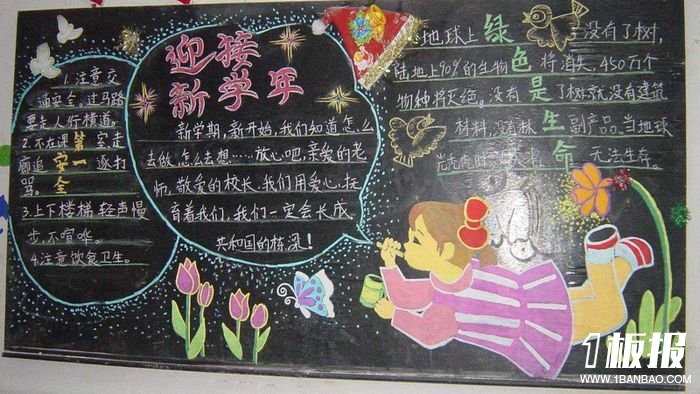 1.注意交
通安全,过马路
要走人行横道。
2.不在课第室走
廊追安一逐打
骂。全
3.上下楼梯,轻声慢
步,不喧哗。
4.注意饮食卫生。
迎接
新学年
新学期,新开始,我们知道怎么
去做,怎么去想……放心吧,亲爱的老
师,敬爱的校长,我们用爱心,抚
育着我们,我们一定会长成
共和国的栋梁!
地球上绿没有了树,
陆地上90%的生物色将消失,450万个
物种将灭绝。没有是了树就没有建筑
材料,没有林生副产品。当地球
光秃秃时命无法生存。
1板报
WWW.1BANBAO.COM